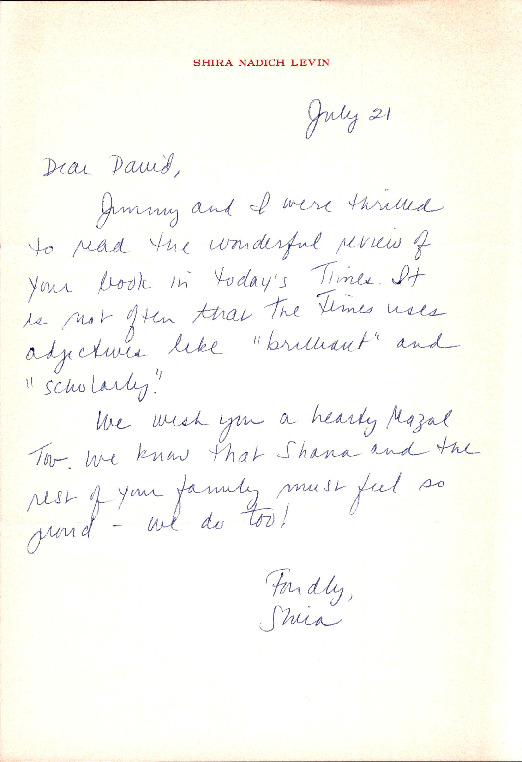 SHIRA NADICH LEVIN
July 21
Dear David,
Jimmy and I were thrilled
to read the wonderful review of
your book in today's Times. It
is not often that the Times uses
adjectives like "brilliant" and
"scholarly."
We wish you a hearty Mazal
Tov. We know that Shana and the
rest of your family must feel so
proud - we do too!
Fondly,
Shira